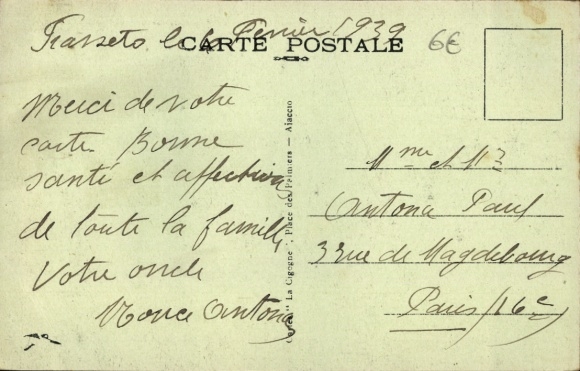 Frasseto le 6 Février 1939
CARTE POSTALE
6€
Merci de votre
carte. Bonne
santé et affection
de toute la famille
Votre oncle
Antona
Cartes "La Cigogne", Place des Palmiers — Ajaccio
Mme et Mr
Antona Paul
3 rue de Magdebourg
Paris (16e)